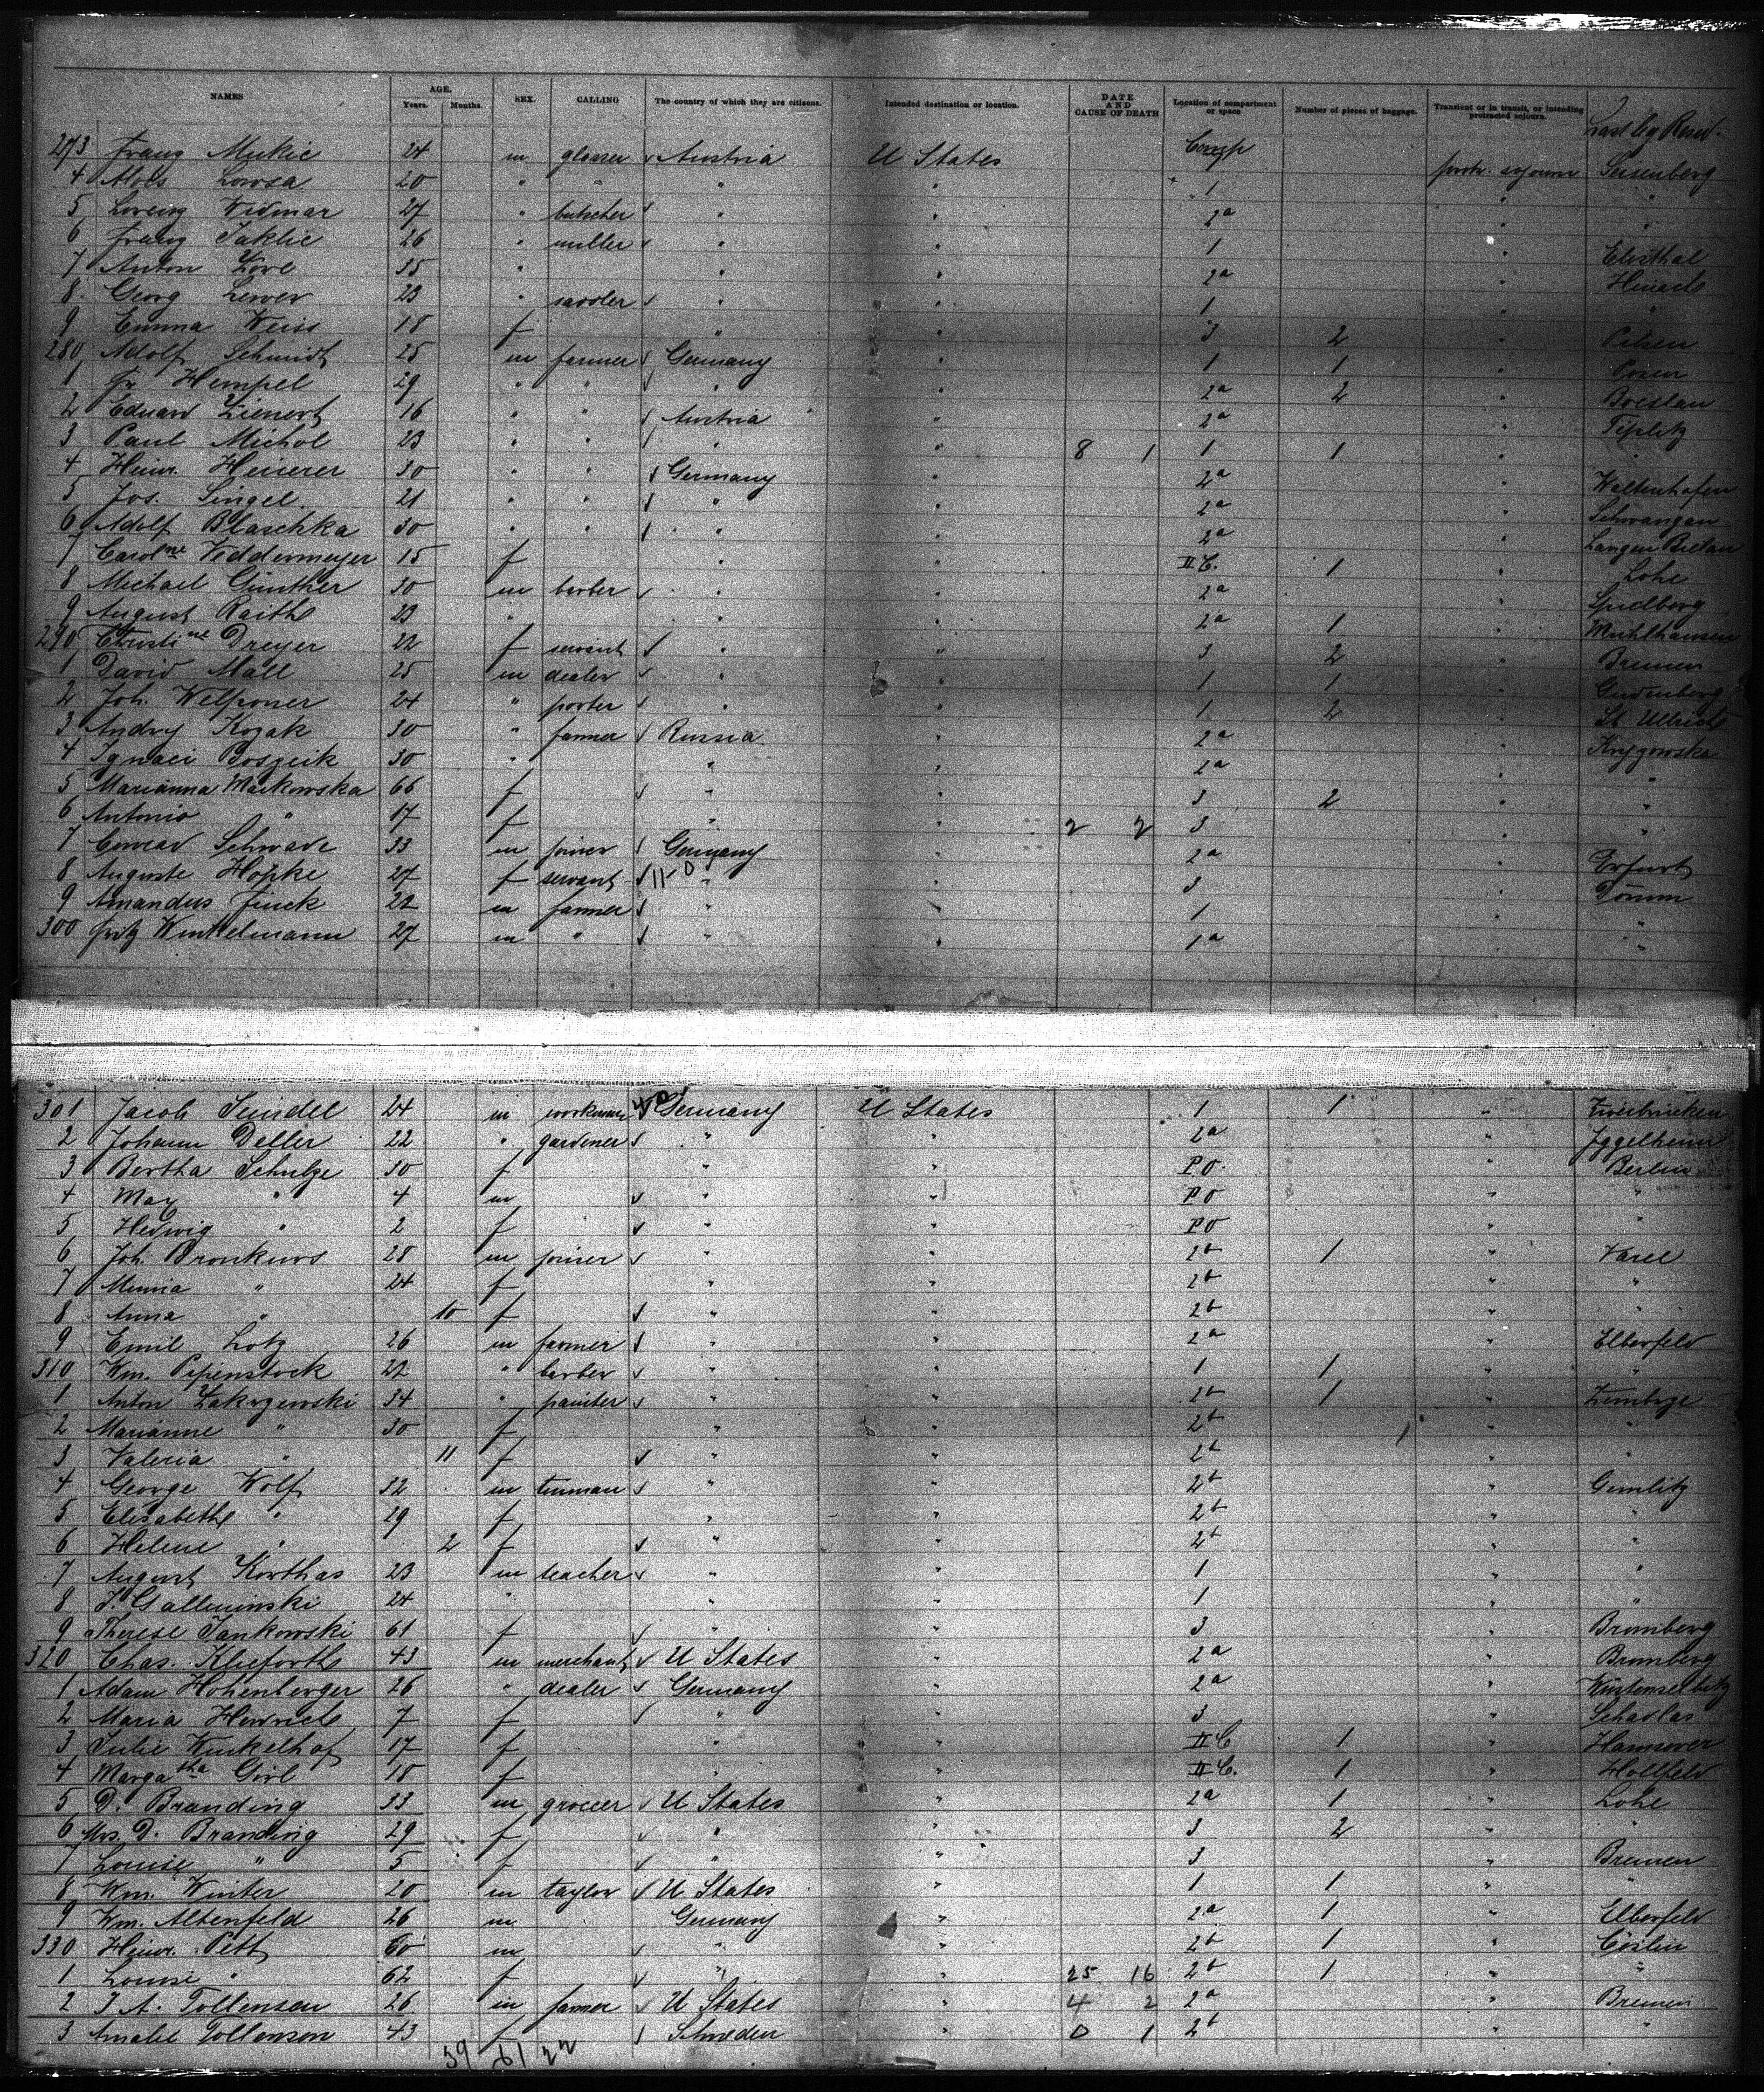 NAMES AGE. Years. Months. SEX. CALLING The country of which they are citizens. Intended destination or location. DATE AND CAUSE OF DEATH Location of compartment or space Number of pieces of baggage. Transient or in transit, or intending protracted sojourn. Last leg Resid.
273 Franz Mukic 24 m glaser Austria U States Comp protr. sojourn Seisenberg
4 Alois 20 " " " " 1 " "
5 Lorenz Widmar 27 " butscher " " 2a " "
6 Franz Jaklic 26 " miller " " 1 "
7 Anton 35 " " " 2a "
8 Georg 23 " " " 1 " "
9 Emma Weiss 18 f " " 3 2 " Pilsen
280 Adolf Schmidt 25 m farmer Germany " 1 1 " Posen
1 Fr Hempel 29 " " " " 2a 2 " Breslau
2 Eduard Zienert 16 " " Austria " 2a " Teplitz
3 Paul Michol 23 " " " " 8 1 1 1 " "
4 Heinr. Heiserer 30 " " Germany " 2a " Waltenhofen
5 Jos. Singel 21 " " " " 2a " Schwangau
6 Adolf Blaschka 30 " " " " 2a " Langen Bielau
7 Carolne Viddermeyer 15 f " " II C. 1 " Lohe
8 Michael Günther 30 m barber " " 2a "
9 August Raith 23 " " " 2a 1 " Mühlhausen
290 Christine Dreyer 22 f servant " " 3 2 " Bremen
1 David Mall 25 m dealer " " 1 1 " Gudenberg
2 Joh. Welponer 24 " porter " " 1 2 " St Ulrich
3 Andry Kozak 30 " farmer Russia " 2a " Kryzowska
4 Ignaci Boszcik 30 " " " 2a " "
5 Marianna Markowska 66 f " " 3 2 " "
6 Antonio " 17 f " " 2 2 3 " "
7 Conrad Schwade 33 m joiner Germany " 2a " Erfurt
8 Auguste Höpke 27 f servant 11-0 " " 3 "
9 Amandus Finck 22 m farmer " " 1 " "
300 Fritz Winkelmann 27 m " " " 1a " "
301 Jacob Seindel 24 m workman Germany U States 1 1 " Zweibrücken
2 Johann Deller 22 " gardener " " 2a " Iggelheim
3 Bertha Schulze 30 f " " P O. " Berlin
4 Max " 4 m " " P O " "
5 Hedwig " 2 f " " P O " "
6 Joh. Bronkurs 28 m joiner " " 2b 1 " Varel
7 Minna " 24 f " " 2b " "
8 Anna " 10 f " " 2b " "
9 Emil Lotz 26 m farmer " " 2a " Elberfeld
310 Wm. Pipenstock 22 " barber " " 1 1 " "
1 Anton Zakrzewski 34 " painter " " 2b 1 "
2 Marianne " 30 f " " 2b " "
3 Valeria " 11 f " " 2b " "
4 George Wolf 32 m tinman " " 2b " Gimlitz
5 Elisabeth " 29 f " " 2b " "
6 Helene " 2 f " " 2b " "
7 August Korthas 23 m teacher " " 1 " "
8 24 " " " 1 " "
9 Therese Jankowski 61 f " " 3 " Bromberg
320 Chas. Klieforth 43 m merchant U States " 2a " Bromberg
1 Adam Hohenberger 26 " dealer Germany " 2a "
2 Maria Henrich 7 f " " 3 "
3 Julie Winkelhof 17 f " " II C 1 " Hannover
4 Margatha Girl 18 f " " II C. 1 " Hollfeld
5 D. Branding 33 m grocer U States " 2a 1 " Lohe
6 Mrs. D. Branding 29 f " " 3 2 " "
7 Louise " 5 f " " 3 " Bremen
8 Wm. Winter 20 m taylor U States " 1 1 " "
9 Wm. Altenfeld 26 m Germany " 2a 1 " Elberfeld
330 Heinr. Pett 60 m " " 2b 1 " Cöslin
1 Louise " 62 f " " 25 16 2b 1 " "
2 J. A. Tollensen 26 m farmer U States " 4 2 2a " Bremen
3 Amalie Tollenson 43 f Schweden " 0 1 2b " "
39 61 22